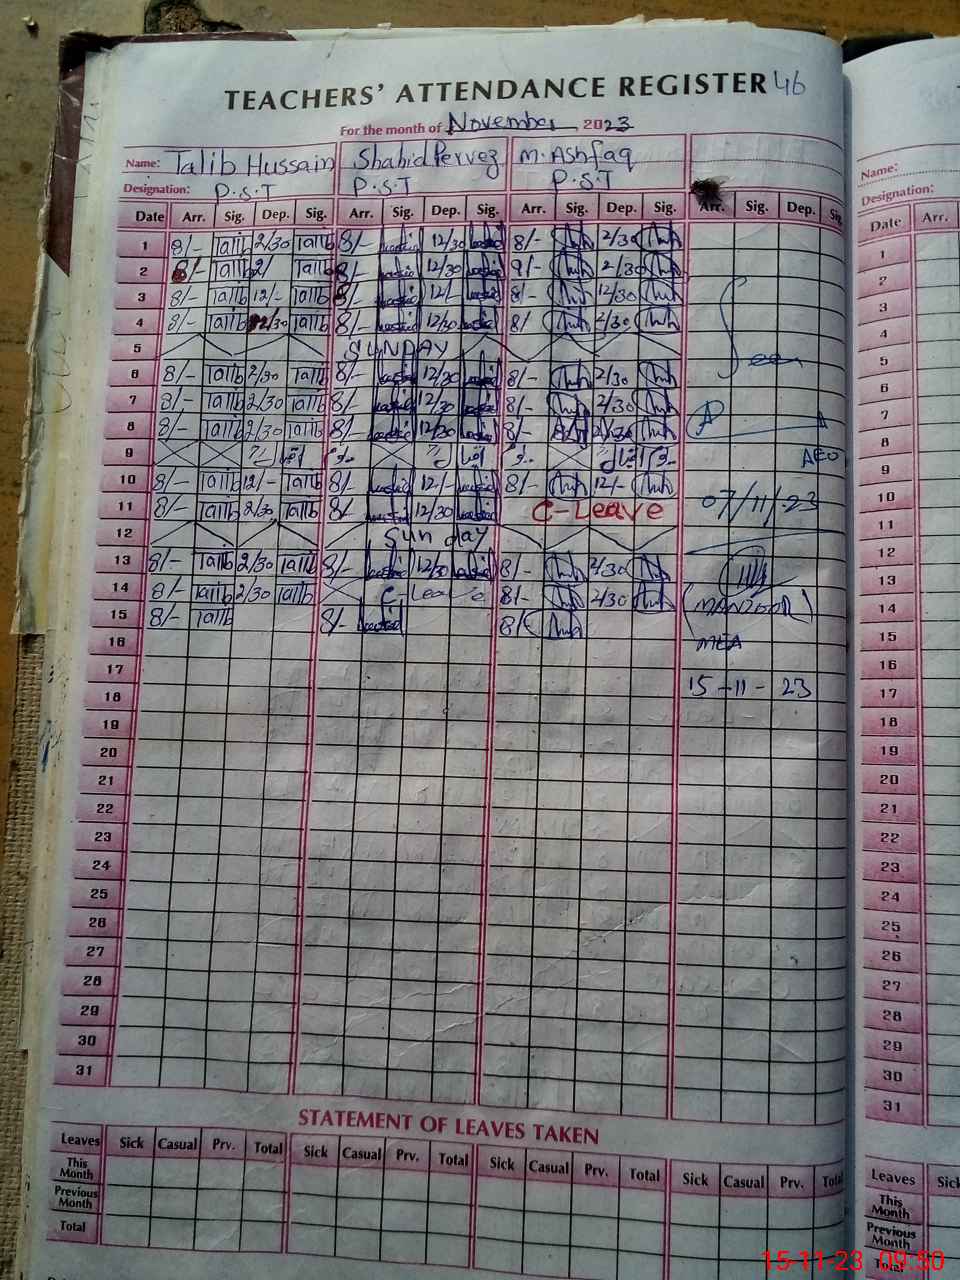 TEACHERS' ATTENDANCE REGISTER 46
For the month of November, 2023
Name: Talib Hussain Shahid Pervez M. Ashfaq
Designation: P.S.T P.S.T P.S.T
Date Arr. Sig. Dep. Sig. Arr. Sig. Dep. Sig. Arr. Sig. Dep. Sig. Arr. Sig. Dep. Sig.
1 8/- Talib 2/30 Talib 8/- 12/30 8/- 2/30
2 8/- Talib 2/ Talib 8/- 12/30 9/- 2/30
3 8/- Talib 12/- Talib 8/- 12/- 8/- 12/30
4 8/- Talib 12/30 Talib 8/- 12/30 8/ 2/30
5 SUNDAY
6 8/- Talib 2/30 Talib 8/- 12/30 8/- 2/30
Seen
7 8/- Talib 2/30 Talib 8/- 12/30 8/- 2/30
8 8/- Talib 2/30 Talib 8/- 12/30 8/- 2/30
9
AEO
10 8/- Talib 12/- Talib 8/- 12/- 8/- 12/-
11 8/- Talib 2/30 Talib 8/- 12/30 C-Leave
07/11/23
12 Sunday
13 8/- Talib 2/30 Talib 8/- 12/30 8/- 2/30
14 8/- Talib 2/30 Talib C-Leave 8/- 2/30
(MANZOOR)
15 8/- Talib 8/- 8/
MEA
16
17
15-11-23
18
19
20
21
22
23
24
25
26
27
28
29
30
31
STATEMENT OF LEAVES TAKEN
Leaves Sick Casual Prv. Total Sick Casual Prv. Total Sick Casual Prv. Total Sick Casual Prv. Total
This Month
Previous Month
Total
Name:
Designation:
Date Arr.
1
2
3
4
5
6
7
8
9
10
11
12
13
14
15
16
17
18
19
20
21
22
23
24
25
26
27
28
29
30
31
Leaves Sick
This Month
Previous Month
Total
15-11-23 09:50